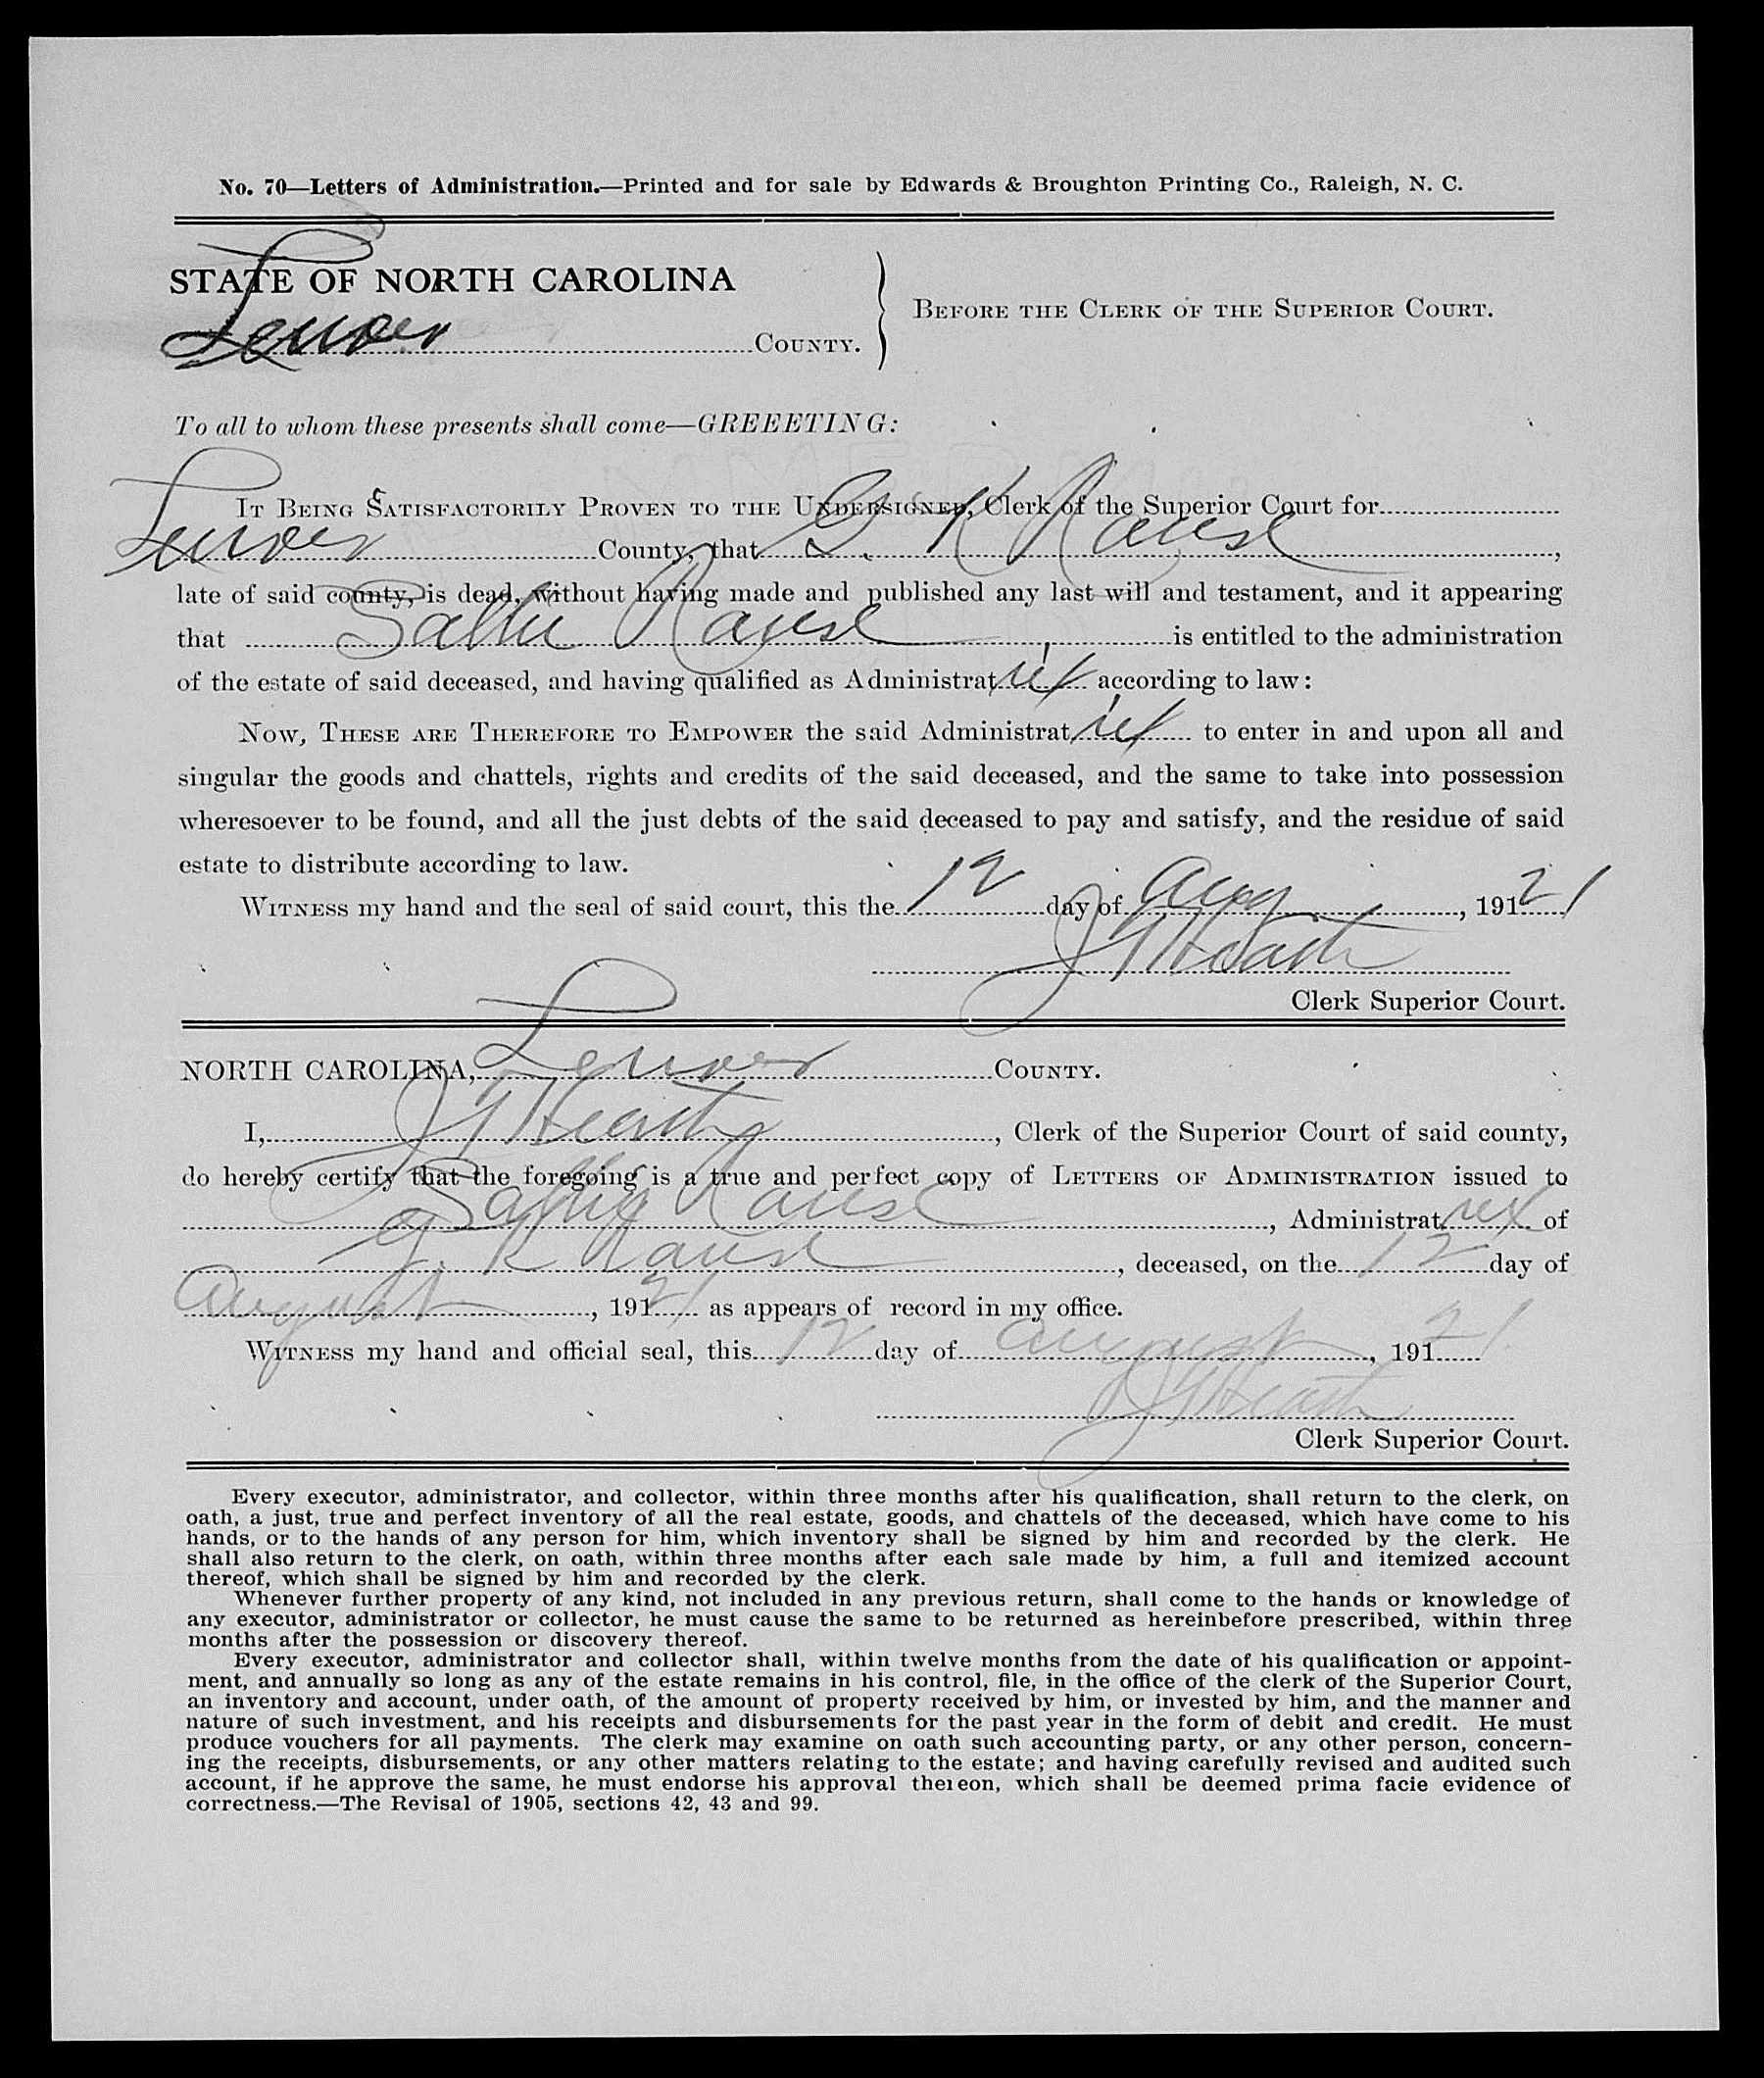 No. 70—Letters of Administration.—Printed and for sale by Edwards & Broughton Printing Co., Raleigh, N. C.
STATE OF NORTH CAROLINA
Lenoir County.
Before the Clerk of the Superior Court.
To all to whom these presents shall come—GREEETING:
It Being Satisfactorily Proven to the Undersigned, Clerk of the Superior Court for
Lenoir County, that G. K Rouse,
late of said county, is dead, without having made and published any last will and testament, and it appearing
that Sallie Rouse is entitled to the administration
of the estate of said deceased, and having qualified as Administratrix according to law:
Now, These are Therefore to Empower the said Administratrix to enter in and upon all and
singular the goods and chattels, rights and credits of the said deceased, and the same to take into possession
wheresoever to be found, and all the just debts of the said deceased to pay and satisfy, and the residue of said
estate to distribute according to law.
Witness my hand and the seal of said court, this the 12 day of Aug, 19121
J T Heath
Clerk Superior Court.
NORTH CAROLINA, Lenoir County.
I, J T Heath, Clerk of the Superior Court of said county,
do hereby certify that the foregoing is a true and perfect copy of Letters of Administration issued to
Sallie Rouse, Administratrix of
G. K Rouse, deceased, on the 12 day of
August, 19121 as appears of record in my office.
Witness my hand and official seal, this 12 day of August, 19121.
J T Heath
Clerk Superior Court.
Every executor, administrator, and collector, within three months after his qualification, shall return to the clerk, on
oath, a just, true and perfect inventory of all the real estate, goods, and chattels of the deceased, which have come to his
hands, or to the hands of any person for him, which inventory shall be signed by him and recorded by the clerk. He
shall also return to the clerk, on oath, within three months after each sale made by him, a full and itemized account
thereof, which shall be signed by him and recorded by the clerk.
Whenever further property of any kind, not included in any previous return, shall come to the hands or knowledge of
any executor, administrator or collector, he must cause the same to be returned as hereinbefore prescribed, within three
months after the possession or discovery thereof.
Every executor, administrator and collector shall, within twelve months from the date of his qualification or appoint-
ment, and annually so long as any of the estate remains in his control, file, in the office of the clerk of the Superior Court,
an inventory and account, under oath, of the amount of property received by him, or invested by him, and the manner and
nature of such investment, and his receipts and disbursements for the past year in the form of debit and credit. He must
produce vouchers for all payments. The clerk may examine on oath such accounting party, or any other person, concern-
ing the receipts, disbursements, or any other matters relating to the estate; and having carefully revised and audited such
account, if he approve the same, he must endorse his approval thereon, which shall be deemed prima facie evidence of
correctness.—The Revisal of 1905, sections 42, 43 and 99.